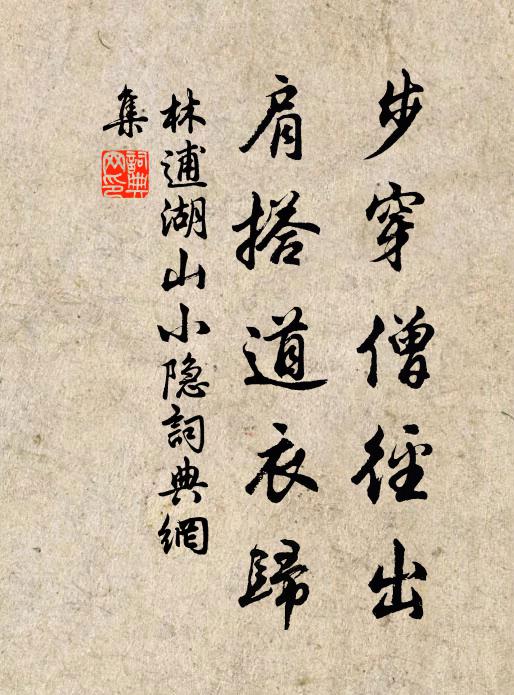 步穿僧徑出
肩搭道衣歸
林逋湖山小隐詞典網
集
詞典
网印